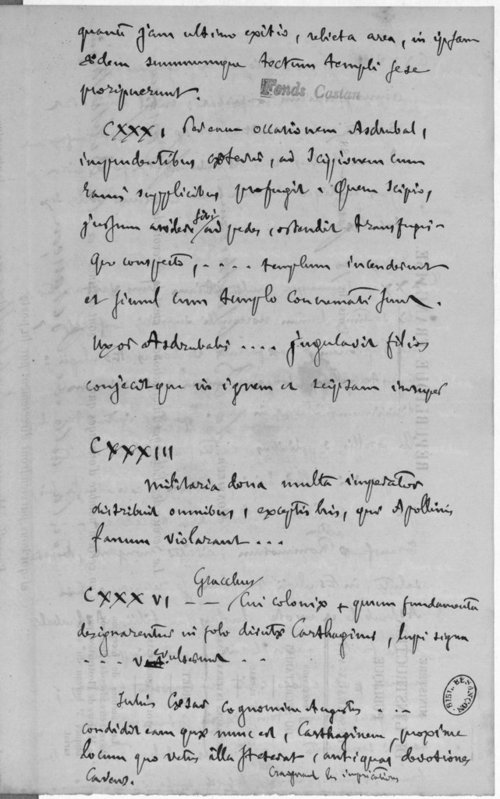 quam jam ultimo exitio, relicta area, in ipsam
ædem summumque tectum templi sese
proripuerunt.
Fonds Castan
CXXXI occasionem Asdrubal,
imprudentibus ceteris, ad Scipionem cum
ramis supplicibus profugit. Quem Scipio,
jussum assidere sibi ad pedes, ostendit transfugis.
Quo conspecto, .... templum incenderunt
et simul cum templo concremati sunt.
Uxor Asdrubalis .... jugulavit filios
conjecitque in ignem et seipsam insuper
CXXXIII
Militaria dona multa imperator
distribuit omnibus, exceptis his, qui Apollinis
fanum violarant ...
Gracchus
CXXXVI -- Cui coloniæ + quum fundamenta
designarentur in solo dirutæ Carthaginis, lupi signa
.... vulserunt ..
Julius Cæsar cognomine Augustus ...
condidit eam quæ nunc est, Carthaginem, proxime
locum quo vetus illa steterat, antiquas devotiones
cavens. les imprécations
BIBL. BESANÇON